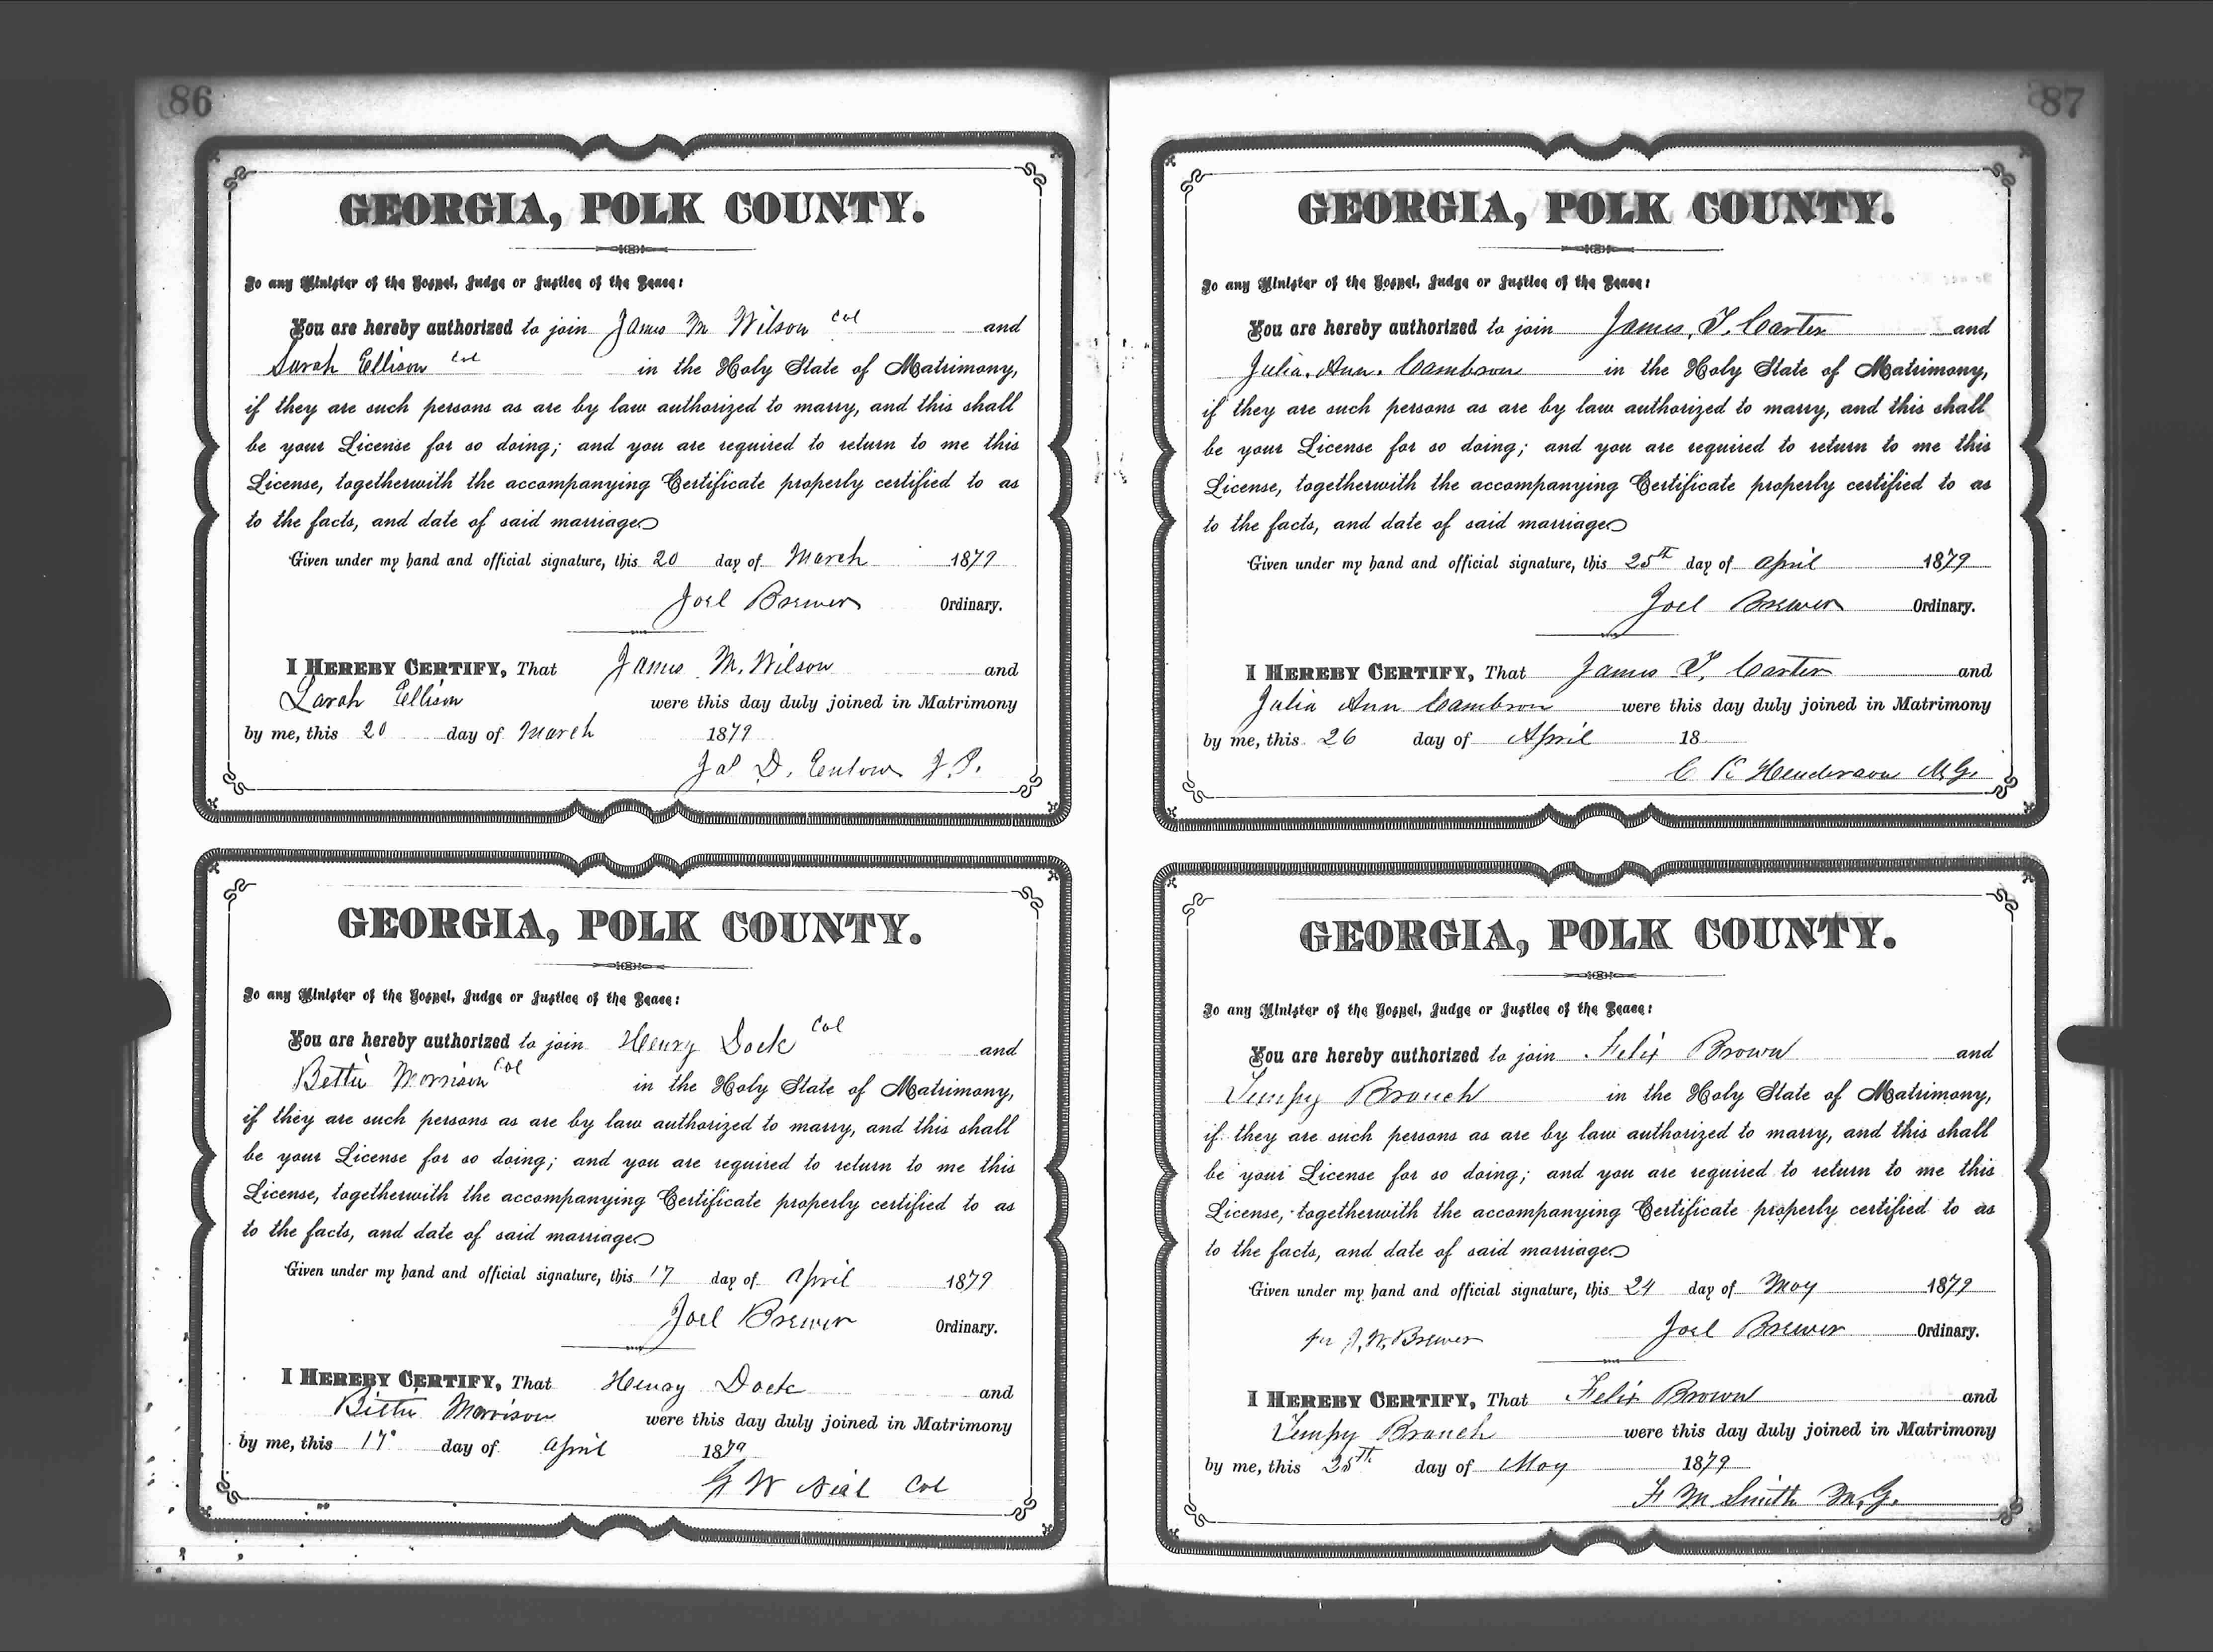 86
GEORGIA, POLK COUNTY.
To any Minister of the Gospel, Judge or Justice of the Peace:
You are hereby authorized to join James M Wilson Col and
Sarah Ellison Col in the Holy State of Matrimony,
if they are such persons as are by law authorized to marry, and this shall
be your License for so doing; and you are required to return to me this
License, togetherwith the accompanying Certificate properly certified to as
to the facts, and date of said marriage
Given under my hand and official signature, this 20 day of March 1879
Joel Brewer Ordinary.
I HEREBY CERTIFY, That James M. Wilson and
Sarah Ellison were this day duly joined in Matrimony
by me, this 20 day of March 1879
D. J.P.
GEORGIA, POLK COUNTY.
To any Minister of the Gospel, Judge or Justice of the Peace:
You are hereby authorized to join Henry Dock Col and
Bettie Morrison Col in the Holy State of Matrimony,
if they are such persons as are by law authorized to marry, and this shall
be your License for so doing; and you are required to return to me this
License, togetherwith the accompanying Certificate properly certified to as
to the facts, and date of said marriage
Given under my hand and official signature, this 17 day of April 1879
Joel Brewer Ordinary.
I HEREBY CERTIFY, That Henry Dock and
Bettie Morrison were this day duly joined in Matrimony
by me, this 17 day of April 1879
G W Col
87
GEORGIA, POLK COUNTY.
To any Minister of the Gospel, Judge or Justice of the Peace:
You are hereby authorized to join James, T. Carter and
Julia. Ann. Cambron in the Holy State of Matrimony,
if they are such persons as are by law authorized to marry, and this shall
be your License for so doing; and you are required to return to me this
License, togetherwith the accompanying Certificate properly certified to as
to the facts, and date of said marriage
Given under my hand and official signature, this 25th day of April 1879
Joel Brewer Ordinary.
I HEREBY CERTIFY, That James T. Carter and
Julia Ann Cambron were this day duly joined in Matrimony
by me, this 26 day of April 18
C K Henderson M.G.
GEORGIA, POLK COUNTY.
To any Minister of the Gospel, Judge or Justice of the Peace:
You are hereby authorized to join Felix Brown and
Tempy Branch in the Holy State of Matrimony,
if they are such persons as are by law authorized to marry, and this shall
be your License for so doing; and you are required to return to me this
License, togetherwith the accompanying Certificate properly certified to as
to the facts, and date of said marriage
Given under my hand and official signature, this 24 day of May 1879
per J. W. Brewer Joel Brewer Ordinary.
I HEREBY CERTIFY, That Felix Brown and
Tempy Branch were this day duly joined in Matrimony
by me, this 25th day of May 1879
F M Smith M.G.